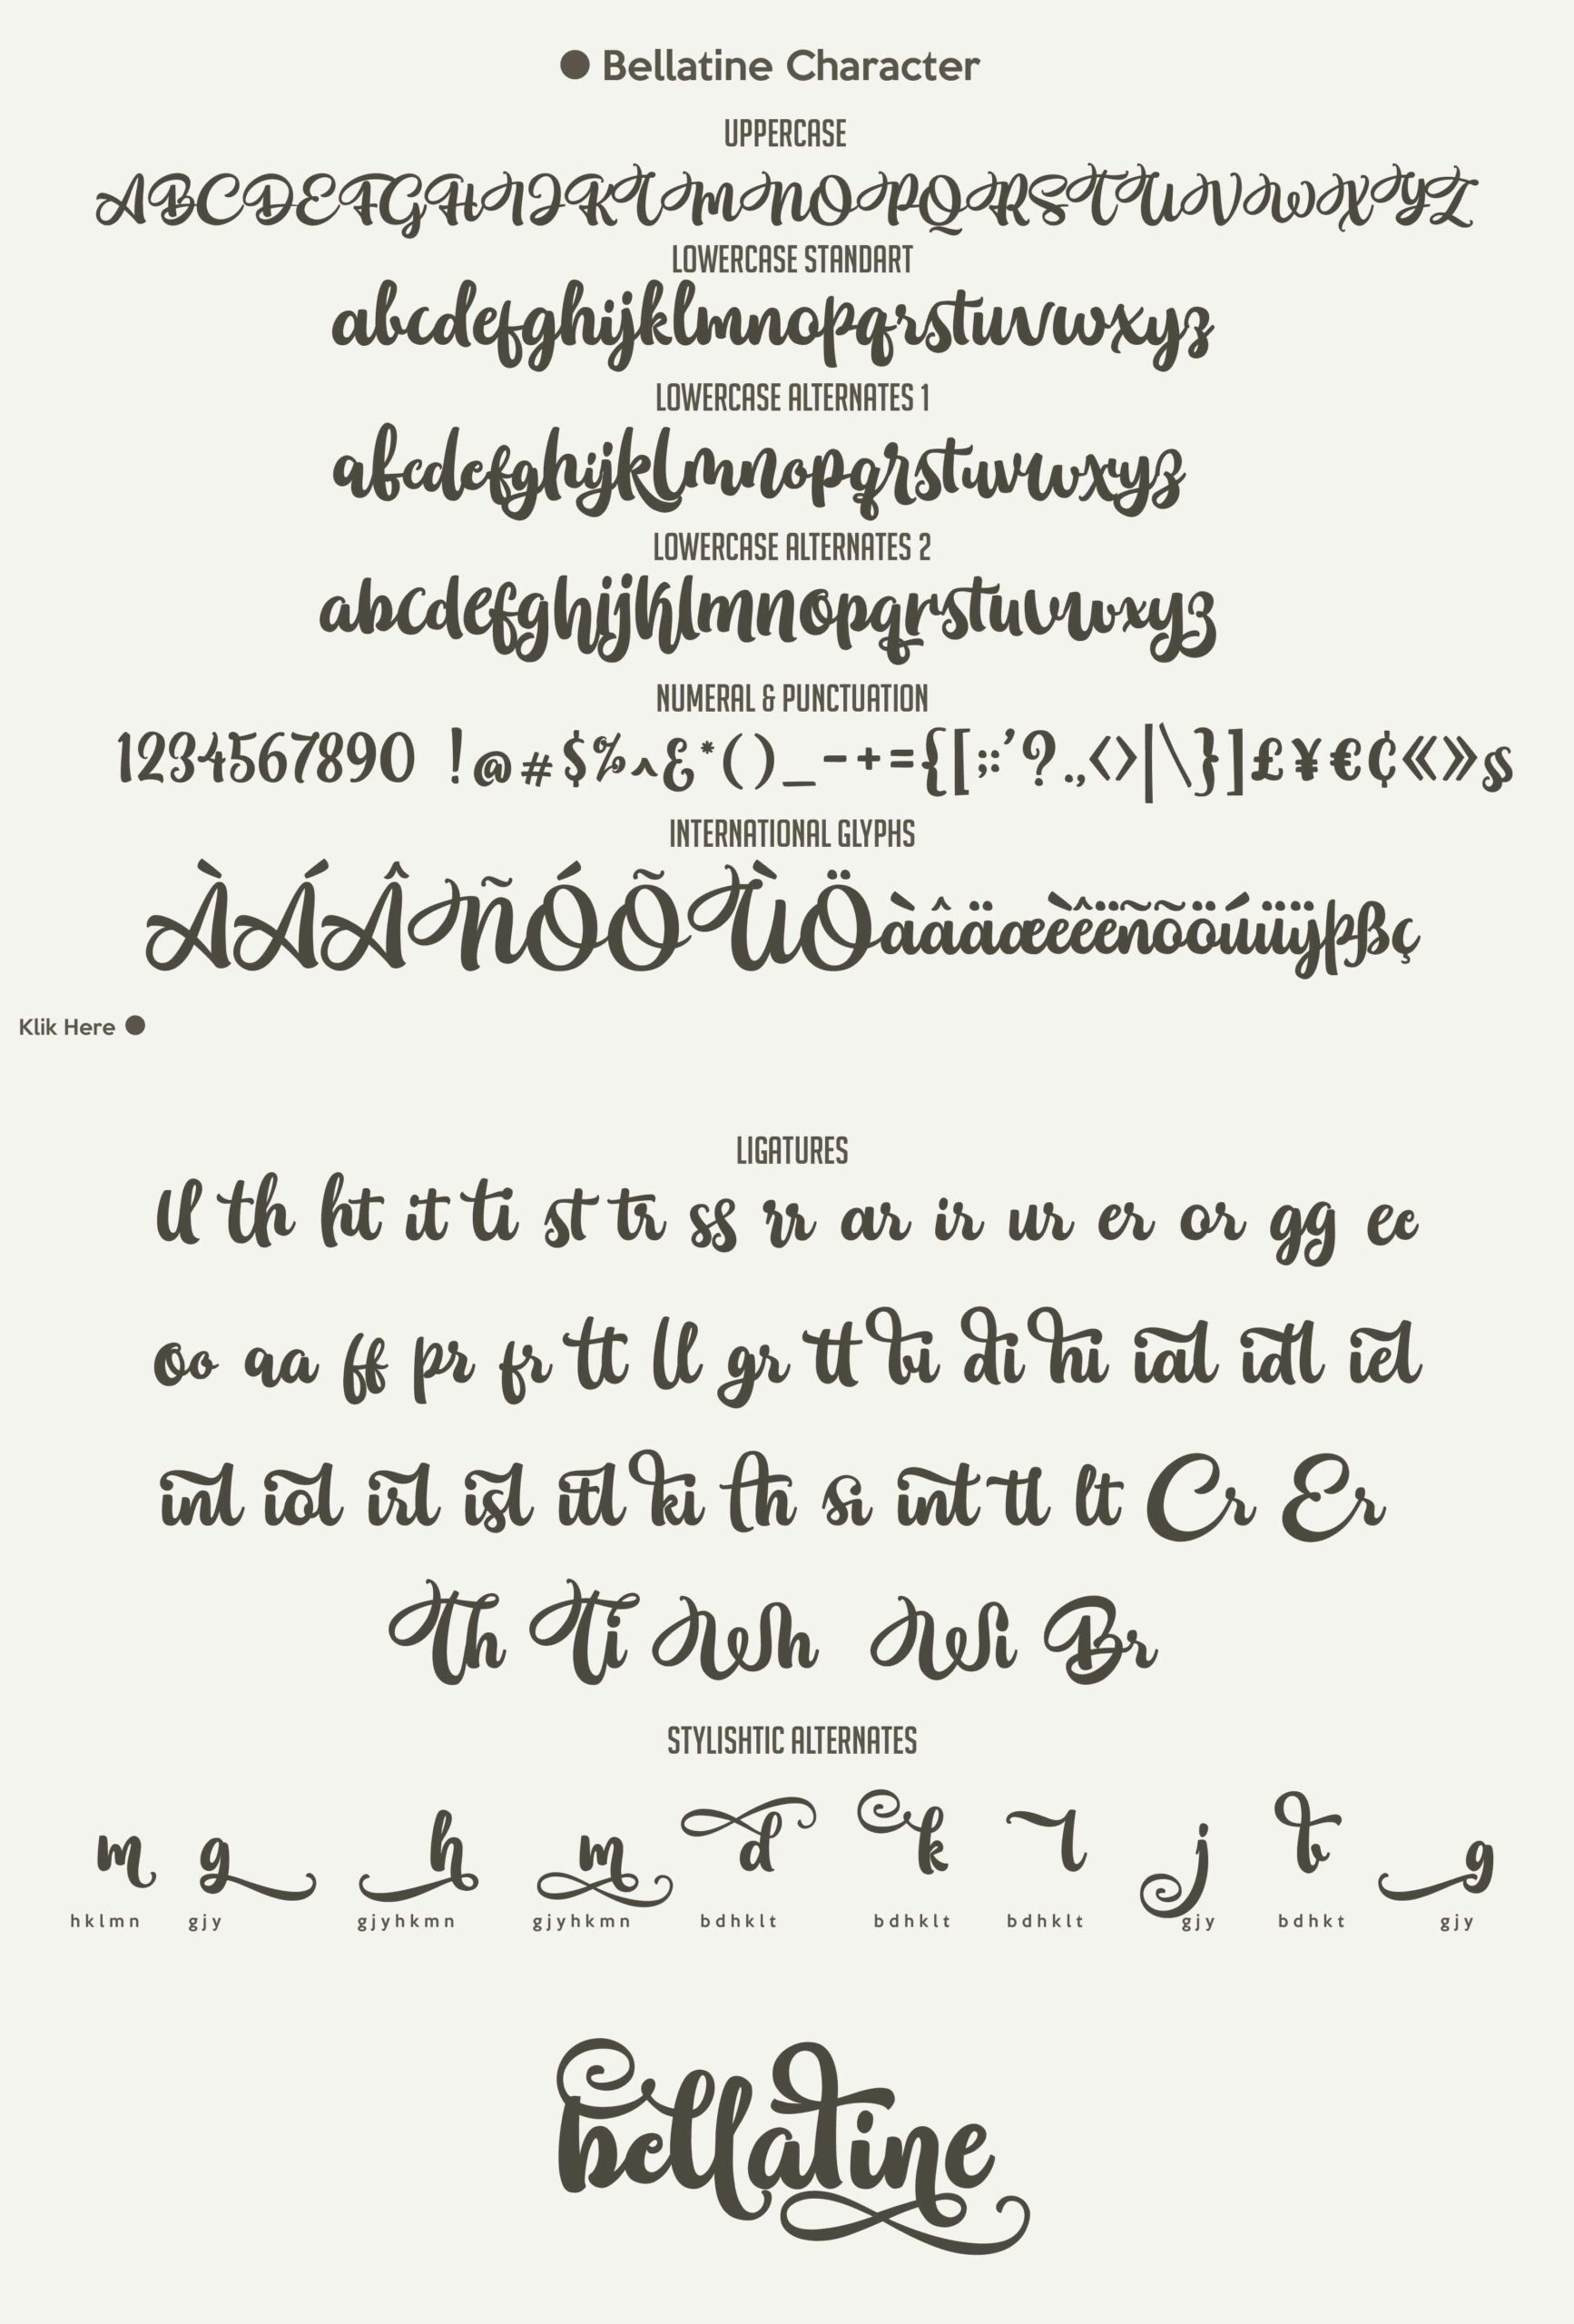 Bellatine Character
UPPERCASE
ABCDEFGHIJKLMNOPQRSTUVWXYZ
LOWERCASE STANDART
abcdefghijklmnopqrstuvwxyz
LOWERCASE ALTERNATES 1
abcdefghijklmnopqrstuvwxyz
LOWERCASE ALTERNATES 2
abcdefghijklmnopqrstuvwxyz
NUMERAL & PUNCTUATION
1234567890 !@#$%^&*()_-+={[;:'?.,<>|\}]£¥€¢«»§
INTERNATIONAL GLYPHS
ÀÁÂÑÓÕÙÖàâäæèêëñõöúüÿþßç
Klik Here
LIGATURES
th ht it ti st tr ss rr ar ir ur er or gg ee
oo aa ff pr fr tt ll gr tt bi di hi ial idl iel
inl iol irl isl itl ki th si int tl lt Cr Er
Th Ti Wh Wi Br
STYLISHTIC ALTERNATES
m g h m d k l j b g
hklmn gjy gjyhkmn gjyhkmn bdhklt bdhklt bdhklt gjy bdhkt gjy
bellatine